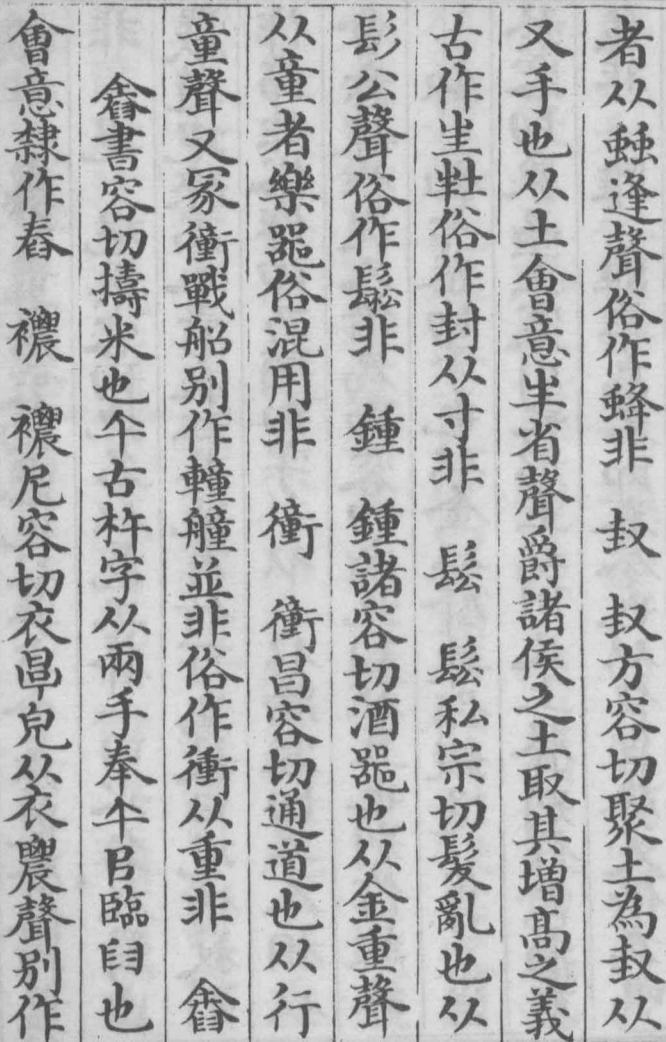 者从䖵逢聲俗作蜂非　𡉚　𡉚方容切聚土為𡉚从
又手也从土會意半省聲爵諸侯之土取其增髙之義
古作𡉘𤘽俗作封从寸非　鬆　鬆私宗切髮亂也从
髟公聲俗作鬆非　鍾　鍾諸容切酒噐也从金重聲
从童者樂噐俗混用非　衝　衝昌容切通道也从行
童聲又冢衝戰船别作䡴艟並非俗作衝从重非　舂
舂書容切擣米也午古杵字从兩手奉午㠯臨臼也
會意隸作舂　襛　襛尼容切衣㫗皃从衣農聲别作